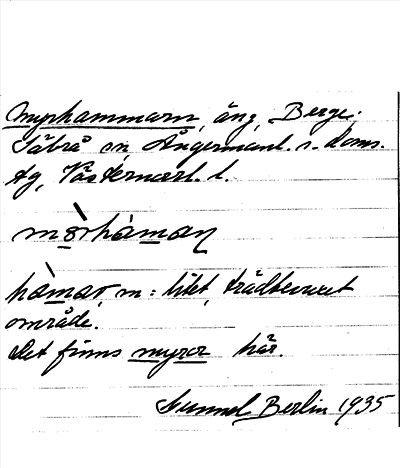 Myrhammarn, äng, Berge,
Säbrå sn, Ångermanl. s. doms.
ög, Västernorrl. l.
mŏ̀rhàmaṇ
hàmar, m: litet, trädbevuxet
område.
Det finns myror här.
Gunnel Berlin 1935